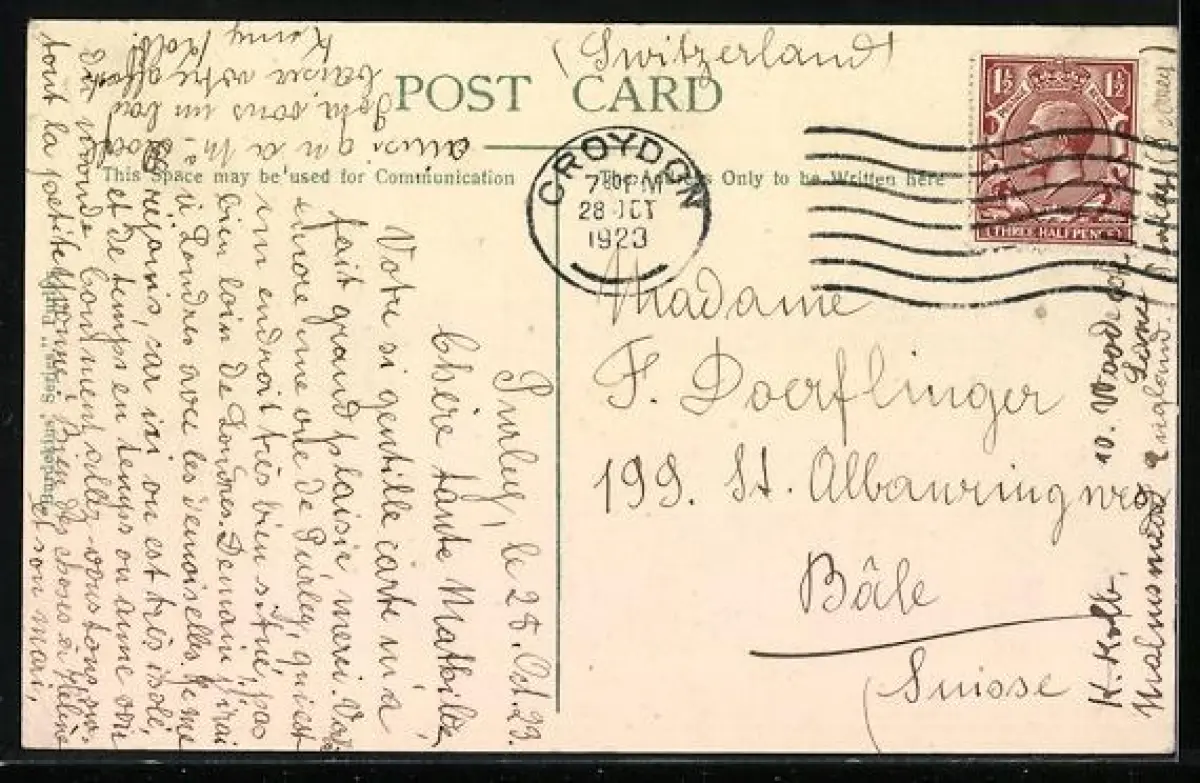 (Switzerland)
POST CARD
This Space may be used for Communication
The Address Only to be Written here
CROYDON
7 PM
28 OCT
1923
1½ 1½
THREE HALF PENCE
Madame
F. Doerflinger
199. St. Albanringweg
Bâle
Suisse
Purley, le 28. Oct. 23.
Chère tante Mathilde,
Votre si gentille carte m'a
fait grand plaisir merci. Voici
encore une vue de Purley, qui est
un endroit très bien situé, pas
bien loin de Londres. Demain j'irai
à Londres avec les demoiselles. Je me
réjouis, car ici on est très isolé,
et de temps en temps on aime voir
du monde. Comment allez-vous tous
tout la petite Bien des choses à Hélène
et son mari,
ainsi qu'a
un bon
baiser votre
K. Kolb.
10. Woodcote
Malmsmead
England